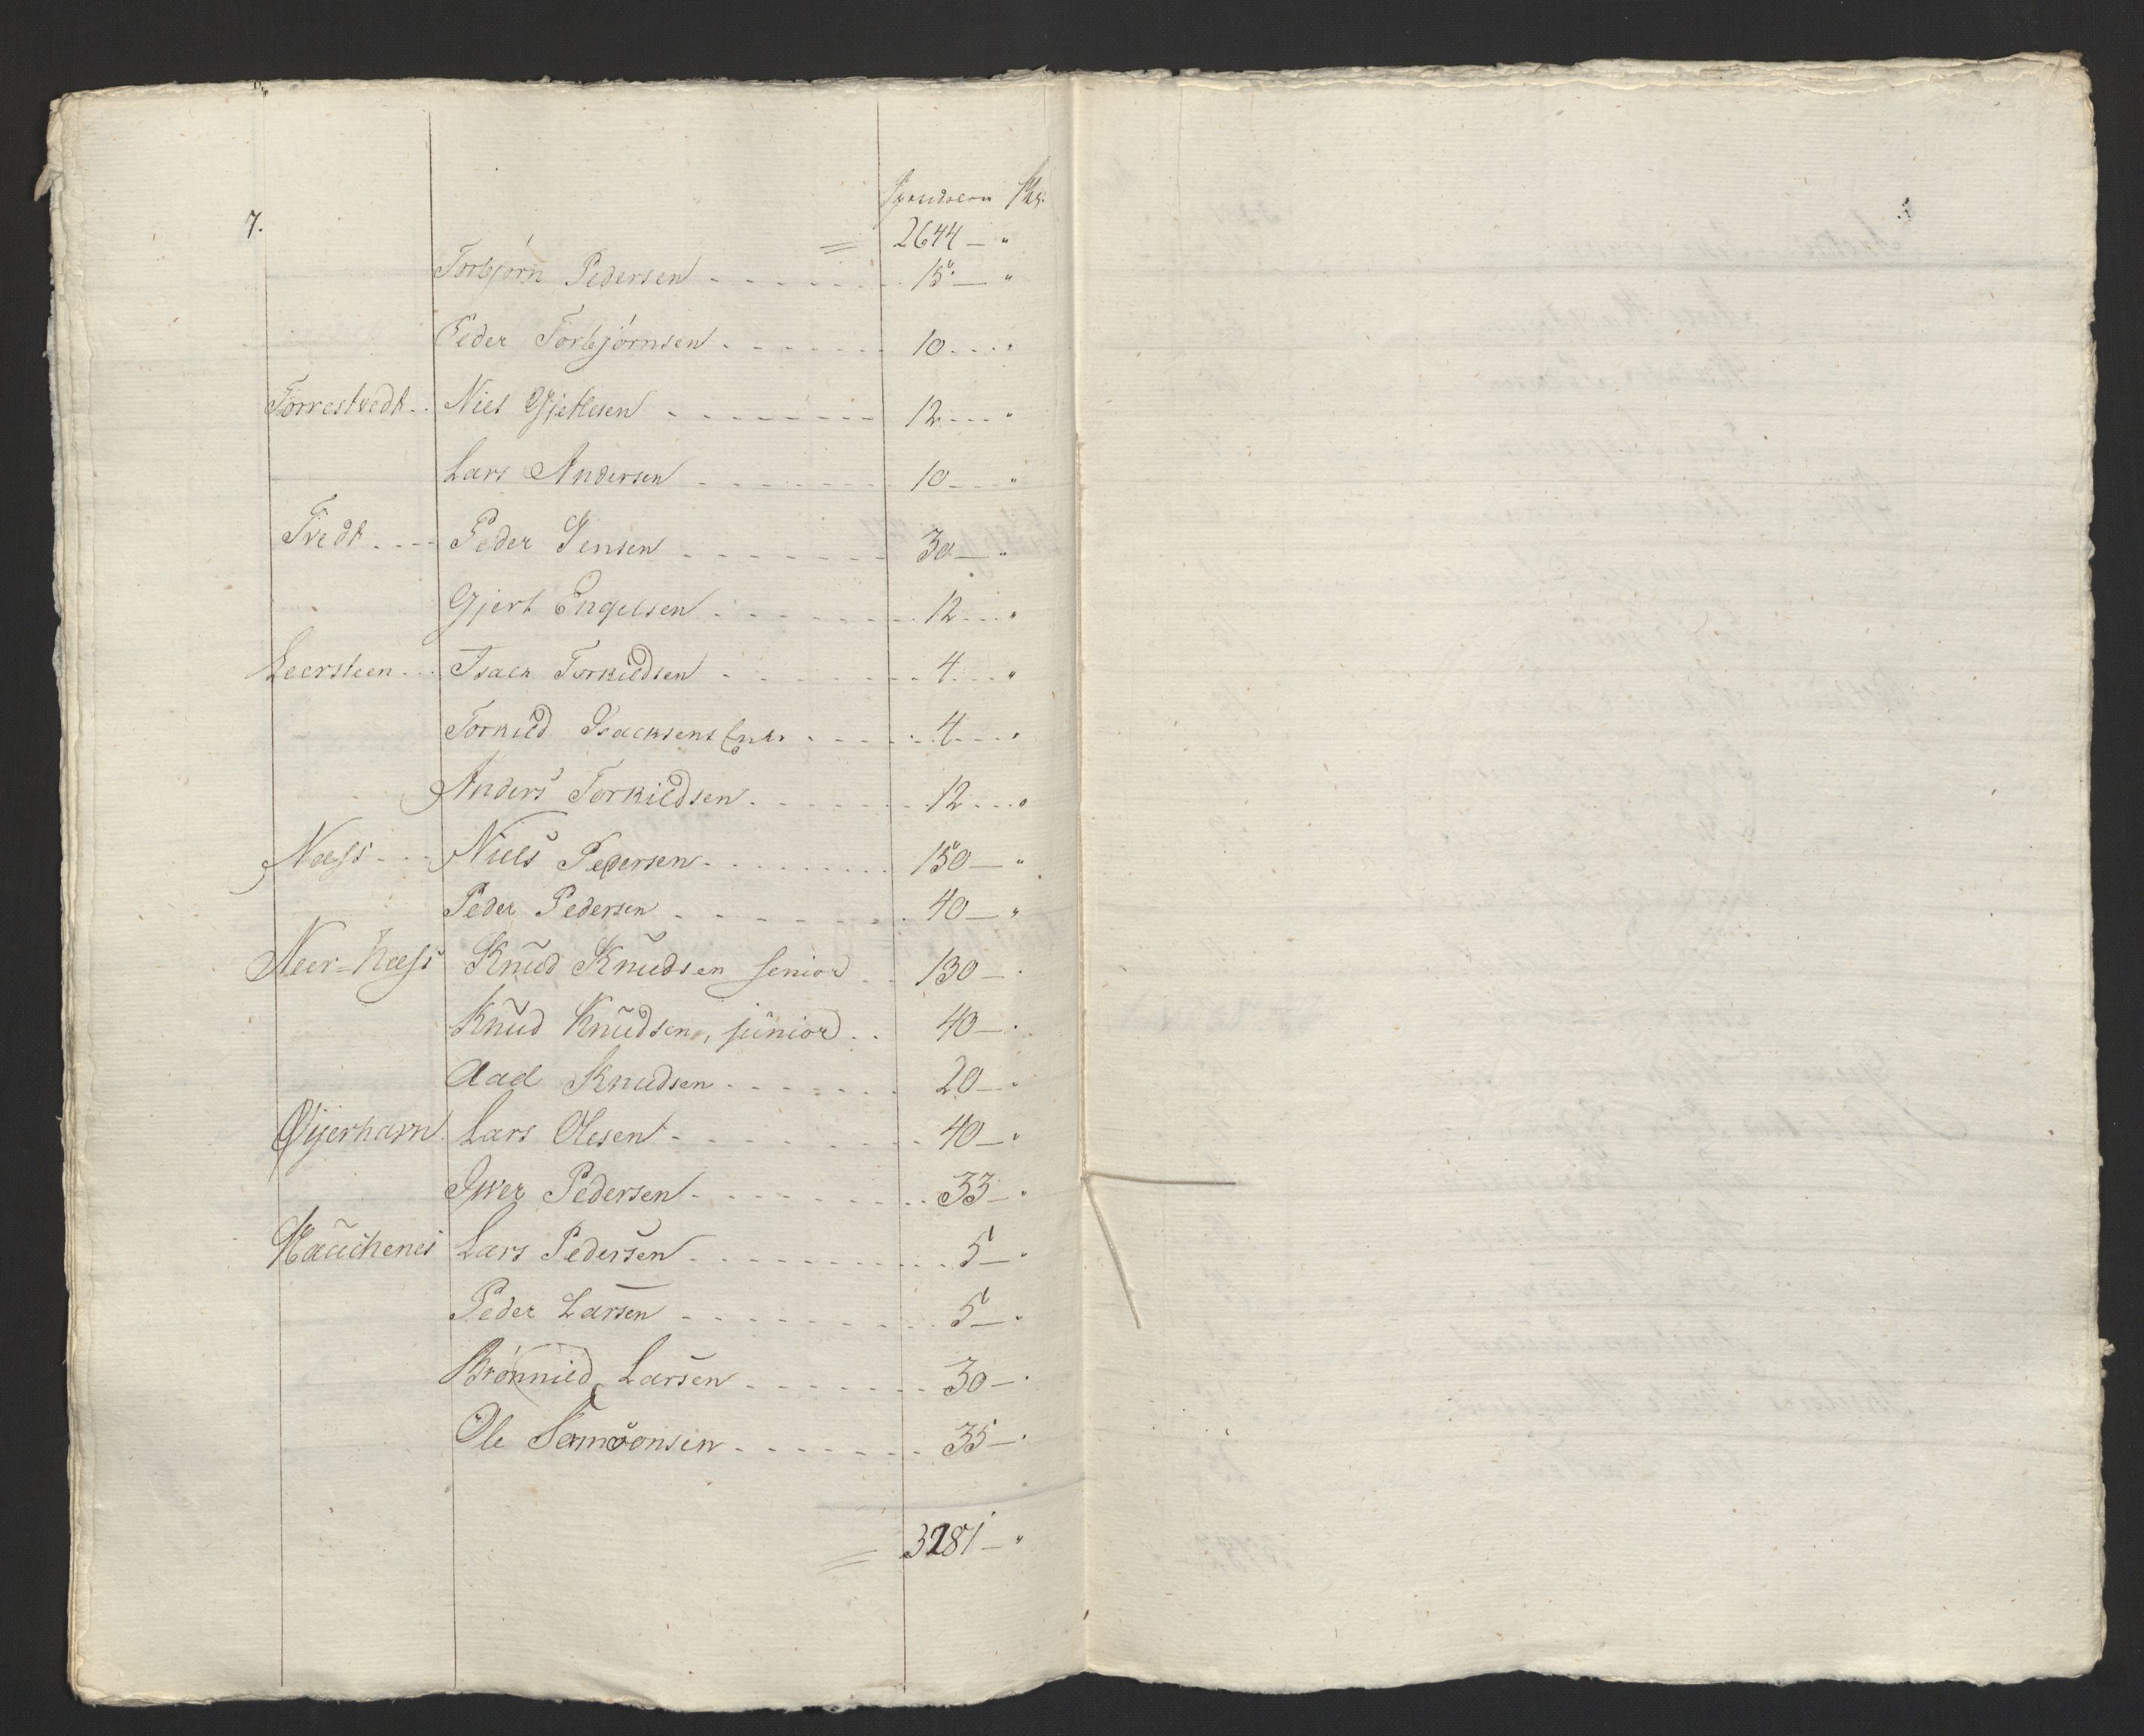 7.
Speciedaler Skl.
= 2644 — "
Torbjørn Pedersen - - - - - - - 15 — "
Peder Torbjørnsen - - - - - - 10 - - - "
Torrestvedt - - Niels Gjetlesen - - - - - - - 12 - - - "
Lars Andersen - - - - - - - 10 - - - "
Tvedt - - - - Peder Jensen - - - - - - - 30 — "
Gjert Engelsen - - - - - - - - 12 - - - "
Leersteen - - - Isach Torkildsen - - - - - - - - 4 - - - "
Torkild Isachsens - - - - - - 4 - - - "
Anders Torkildsen - - - - - - - 12 - - - "
Næss - - - Niels Pedersen - - - - - - - - - 150 — "
Peder Pedersen - - - - - - - - 40 — "
Neer-Næss Knud Knudsen senior - - 130 — "
Knud Knudsen, junior - - 40 — "
Aad Knudsen - - - - - - - 20 — "
Øijerhavn Lars Olesen - - - - - - - - - 40 — "
Iver Pedersen - - - - - - - - - 33 — "
Hauchenes Lars Pedersen - - - - - - - - - - 5 — "
Peder Larsen - - - - - - - - - - 5 — "
Brønnild Larsen - - - - - - - 30 — "
Ole Samsonsen - - - - - - - 35 — "
= 3281 — "